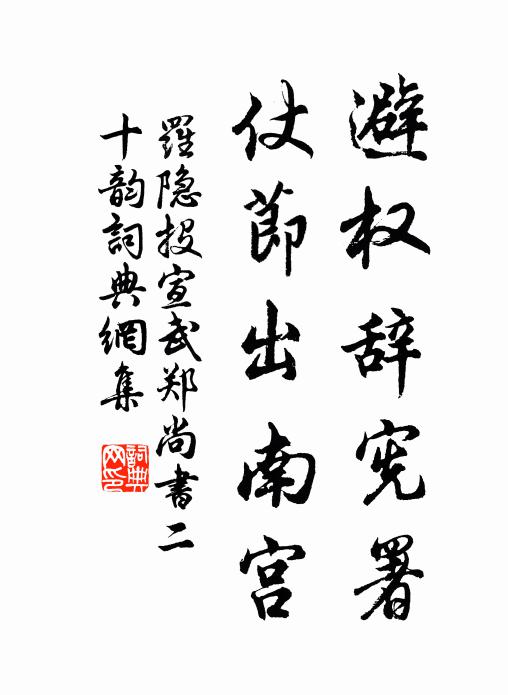 避权辞宪署
仗節出南宫
羅隐投宣武郑尚書二
十韵詞典網集
詞典網印